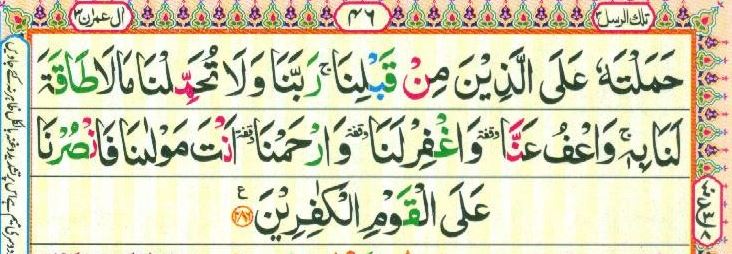 تلك الرسل ٣
٤٦
اٰل عمرٰن ٣
حَمَلْتَهٗ عَلَى الَّذِيْنَ مِنْ قَبْلِنَا ۚ رَبَّنَا وَلَا تُحَمِّلْنَا مَا لَا طَاقَةَ
لَنَا بِهٖ ۚ وَاعْفُ عَنَّا وقفة وَاغْفِرْ لَنَا وقفة وَارْحَمْنَا وقفة اَنْتَ مَوْلٰىنَا فَانْصُرْنَا
عَلَى الْقَوْمِ الْكٰفِرِيْنَ ﴿٢٨٦﴾ ع